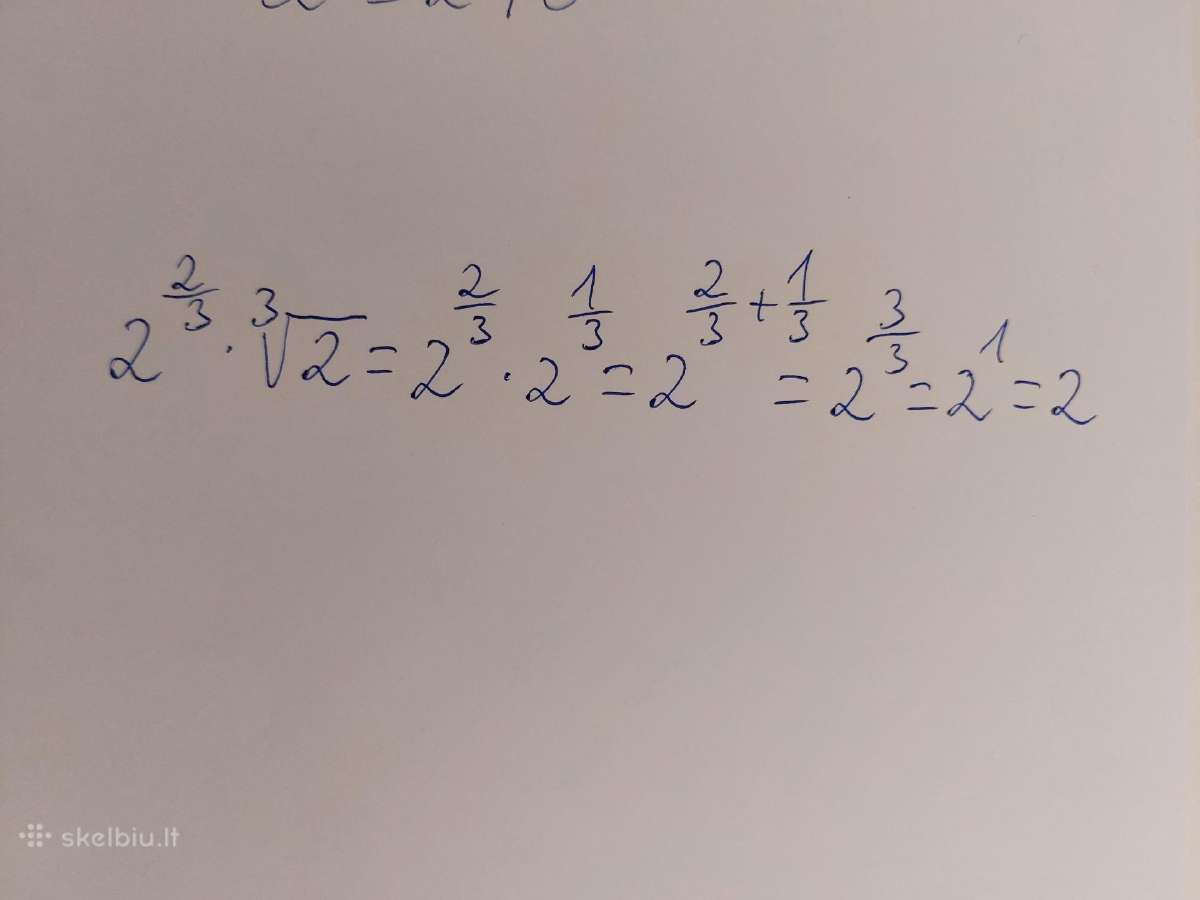 2^{2/3} · ∛2 = 2^{2/3} · 2^{1/3} = 2^{2/3 + 1/3} = 2^{3/3} = 2^1 = 2
skelbiu.lt